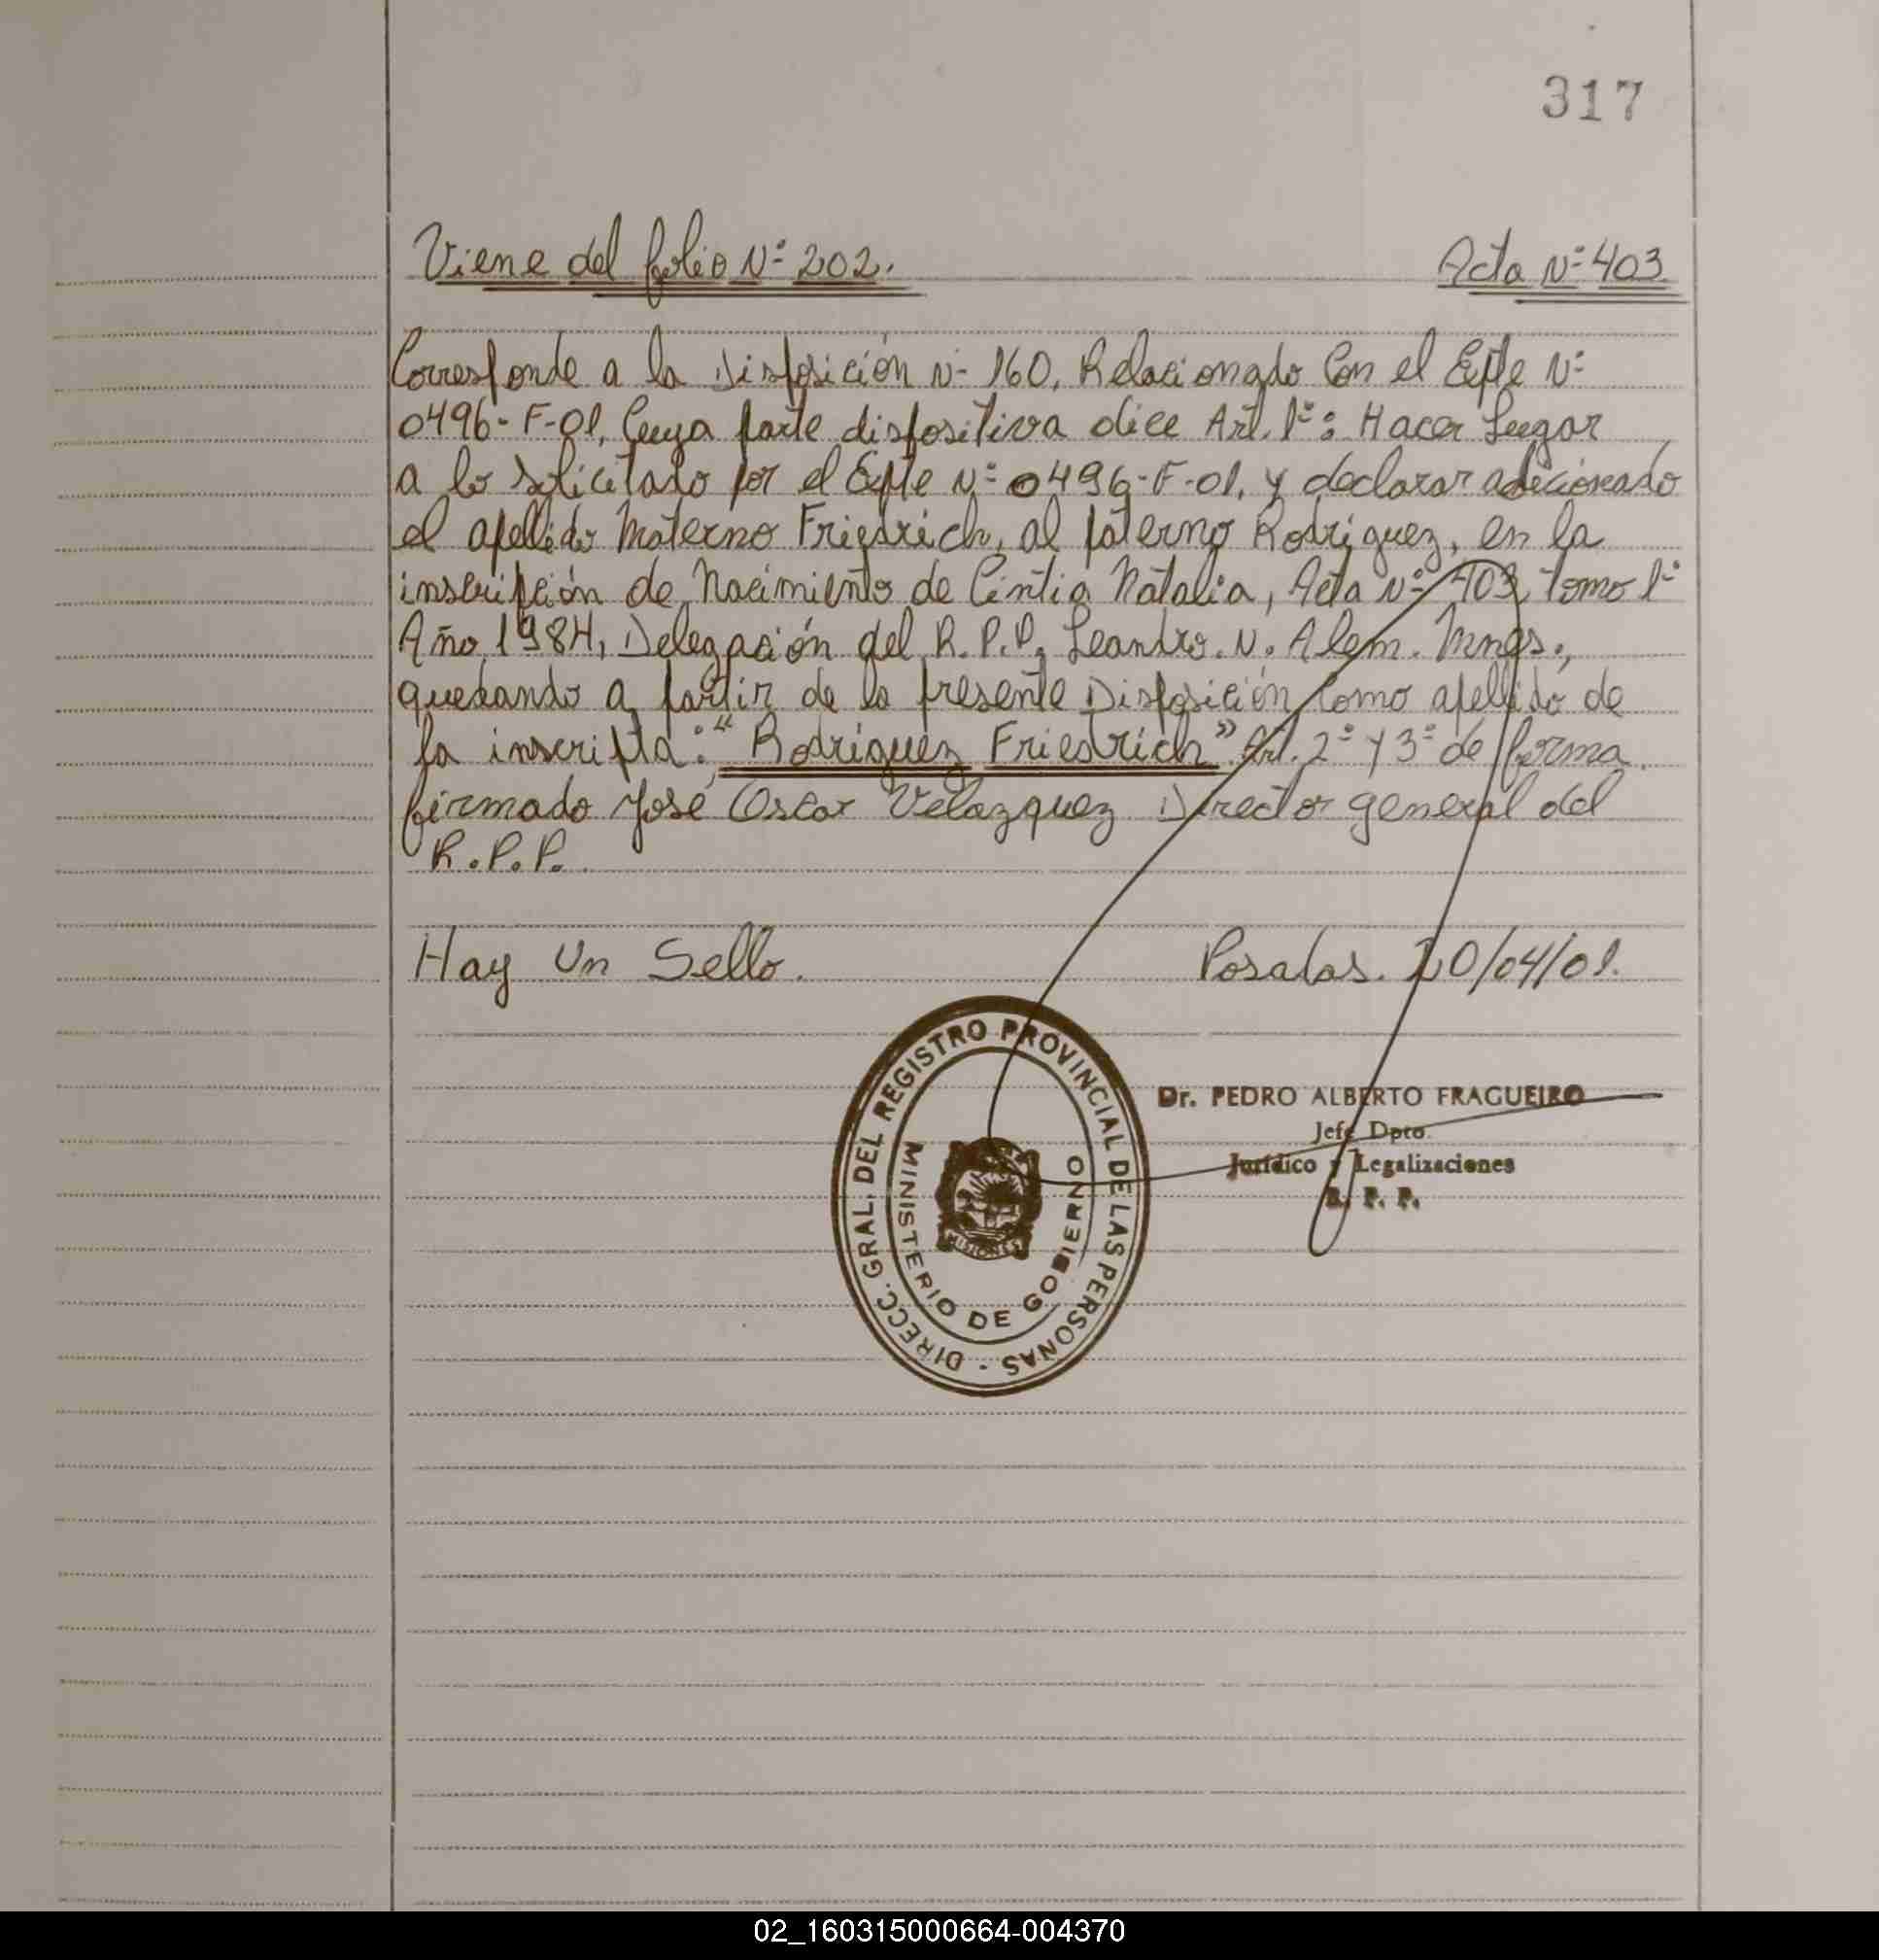 317
Viene del folio Nº 202. Acta Nº 403
Corresponde a la Disposición Nº 160, Relacionado Con el Expte Nº
0496-F-01, Cuya parte dispositiva dice Art. 1º: Hacer Lugar
a lo solicitado por el Expte Nº 0496-F-01, y declarar adicionado
el apellido Materno Friedrich, al paterno Rodríguez, en la
inscripción de Nacimiento de Cintia Natalia, Acta Nº 403 tomo 1º
Año 1984, Delegación del R.P.P. Leandro. N. Alem. Mnes.,
quedando a partir de la presente Disposición Como apellido de
la inscripta: "Rodríguez Friedrich" Art. 2º y 3º de forma.
firmado José Oscar Velazquez Director general del
R.P.P.
Hay Un Sello. Posadas. 20/04/01.
DIRECC. GRAL. DEL REGISTRO PROVINCIAL DE LAS PERSONAS -
MINISTERIO DE GOBIERNO
MISIONES
Dr. PEDRO ALBERTO FRAGUEIRO
Jefe Dpto.
Jurídico y Legalizaciones
R. P. P.
02_160315000664-004370